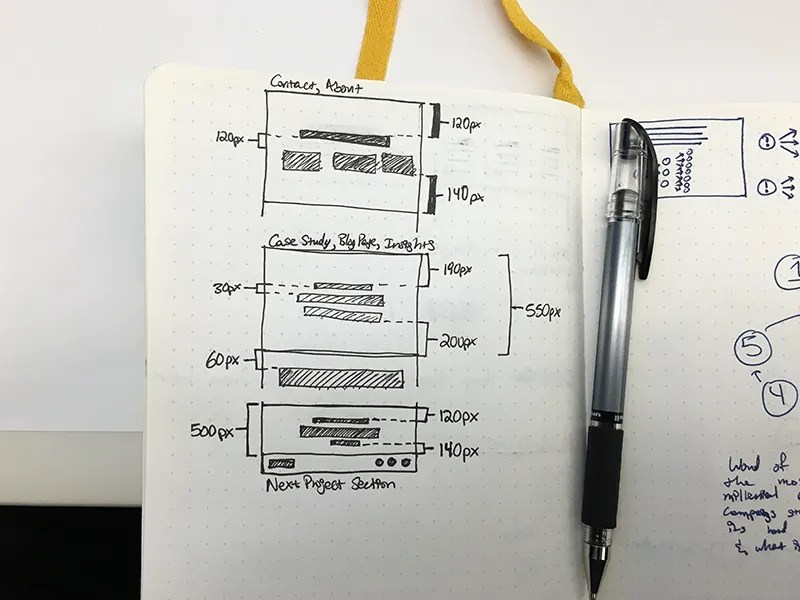 Contact, About
120px
120px
140px
Case Study, Blog Page, Insights
190px
30px
550px
200px
60px
120px
500px
140px
Next Project Section
1
5
4
Word of
the mo
millenial
Campaigns
its
& what